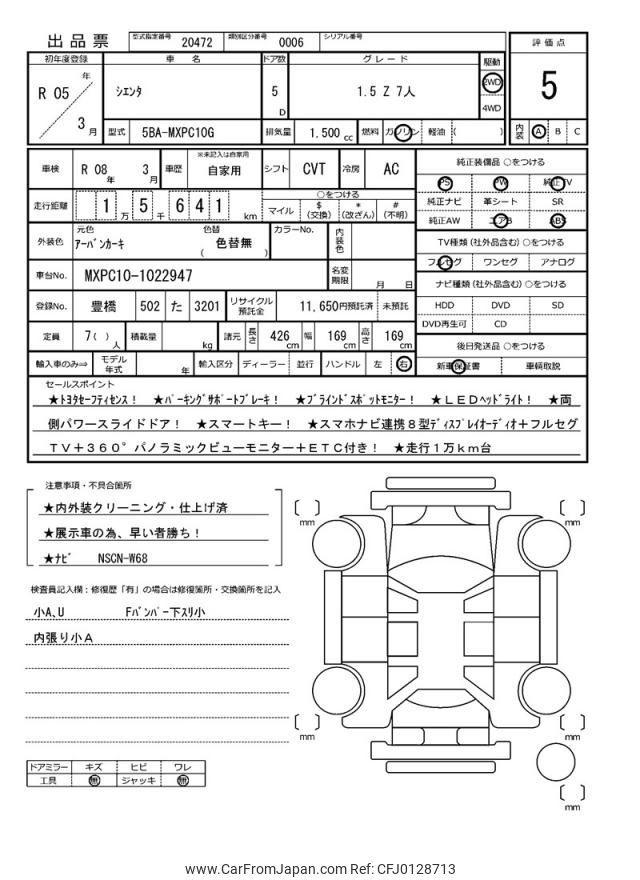 出品票 型式指定番号 20472 類別区分番号 0006 シリアル番号
評価点
初年度登録 車名 ドア数 グレード 駆動
R 05 年 3 月 シエンタ 5 D 1.5 Z 7人 2WD 4WD 5
型式 5BA-MXPC10G 排気量 1.500 cc 燃料 ガソリン 軽油 ( ) 内装 A B C
車検 R 08 年 3 月 車歴 ※未記入は自家用 自家用 シフト CVT 冷房 AC
純正装備品 ○をつける
PS PW 純正TV
純正ナビ 革シート SR
純正AW エアB ABS
走行距離 1 万 5 千 6 4 1 km
○をつける
マイル $ (交換) * (改ざん) # (不明)
外装色 元色 アーバンカーキ 色替 色替無 ( ) カラーNo. 内装色
TV種類(社外品含む)○をつける
フルセグ ワンセグ アナログ
車台No. MXPC10-1022947 名変期限 月 日
ナビ種類(社外品含む)○をつける
HDD DVD SD
DVD再生可 CD
登録No. 豊橋 502 た 3201 リサイクル預託金 11,650円預託済 未預託
定員 7( )人 積載量 kg 諸元 長さ 426 cm 幅 169 cm 高さ 169 cm
後日発送品 ○をつける
新車保証書 車輌取説
輸入車のみ⇒ モデル年式 年 輸入区分 ディーラー 並行 ハンドル 左 右
セールスポイント
★トヨタセーフティセンス! ★パーキングサポートブレーキ! ★ブラインドスポットモニター! ★LEDヘッドライト! ★両
側パワースライドドア! ★スマートキー! ★スマホナビ連携8型ディスプレイオーディオ+フルセグ
TV+360°パノラミックビューモニター+ETC付き! ★走行1万km台
注意事項・不具合箇所
★内外装クリーニング・仕上げ済
★展示車の為、早い者勝ち!
★ナビ NSCN-W68
検査員記入欄:修復歴「有」の場合は修復箇所・交換箇所を記入
小A、U Fバンパー下スリ小
内張り小A
mm
mm
mm
mm
mm
ドアミラー キズ ヒビ ワレ
工具 無 ジャッキ 無
www.CarFromJapan.com Ref: CAJ0128713